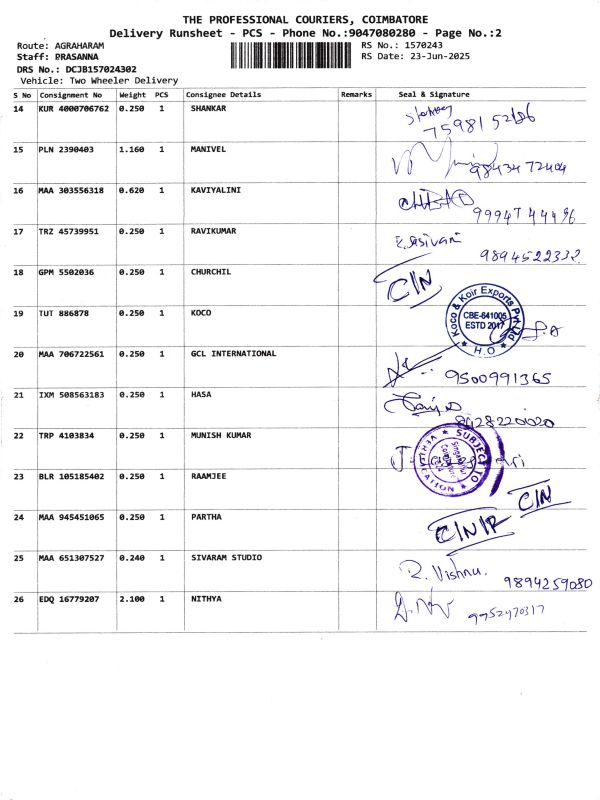 THE PROFESSIONAL COURIERS, COIMBATORE
Delivery Runsheet - PCS - Phone No.:9047080280 - Page No.:2
Route: AGRAHARAM RS No.: 1570243
Staff: PRASANNA RS Date: 23-Jun-2025
DRS No.: DCJB157024302
Vehicle: Two Wheeler Delivery
S No Consignment No Weight PCS Consignee Details Remarks Seal & Signature
14 KUR 4000706762 0.250 1 SHANKAR
75981 52186
15 PLN 2390403 1.160 1 MANIVEL
98434 72404
16 MAA 303556318 0.620 1 KAVIYALINI
99947 44496
17 TRZ 45739951 0.250 1 RAVIKUMAR
9894522332
18 GPM 5502036 0.250 1 CHURCHIL C/N
19 TUT 886878 0.250 1 KOCO
Koco & Koir Exports Pvt Ltd
CBE-641005
ESTD 2017
H.O
20 MAA 706722561 0.250 1 GCL INTERNATIONAL
9500991365
21 IXM 508563183 0.250 1 HASA
22 TRP 4103834 0.250 1 MUNISH KUMAR
SUBJECT TO VERIFICATION
23 BLR 105185402 0.250 1 RAAMJEE C/N
24 MAA 945451065 0.250 1 PARTHA C/N/R
25 MAA 651307527 0.240 1 SIVARAM STUDIO R. Vishnu.
9894259080
26 EDQ 16779207 2.100 1 NITHYA
9952470317